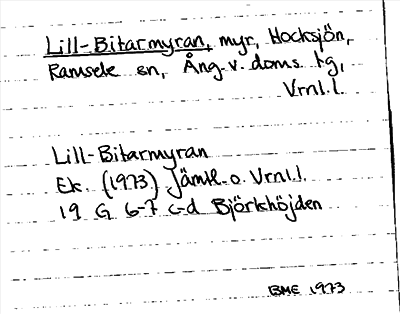 Lill-Bitarmyran, myr, Hocksjön,
Ramsele sn, Ång. v. doms. tg,
Vrnl. l.
Lill-Bitarmyran
Ek. (1973) Jämtl. o. Vrnl. l.
19 G 6-7 c-d Björkhöjden
BME 1973